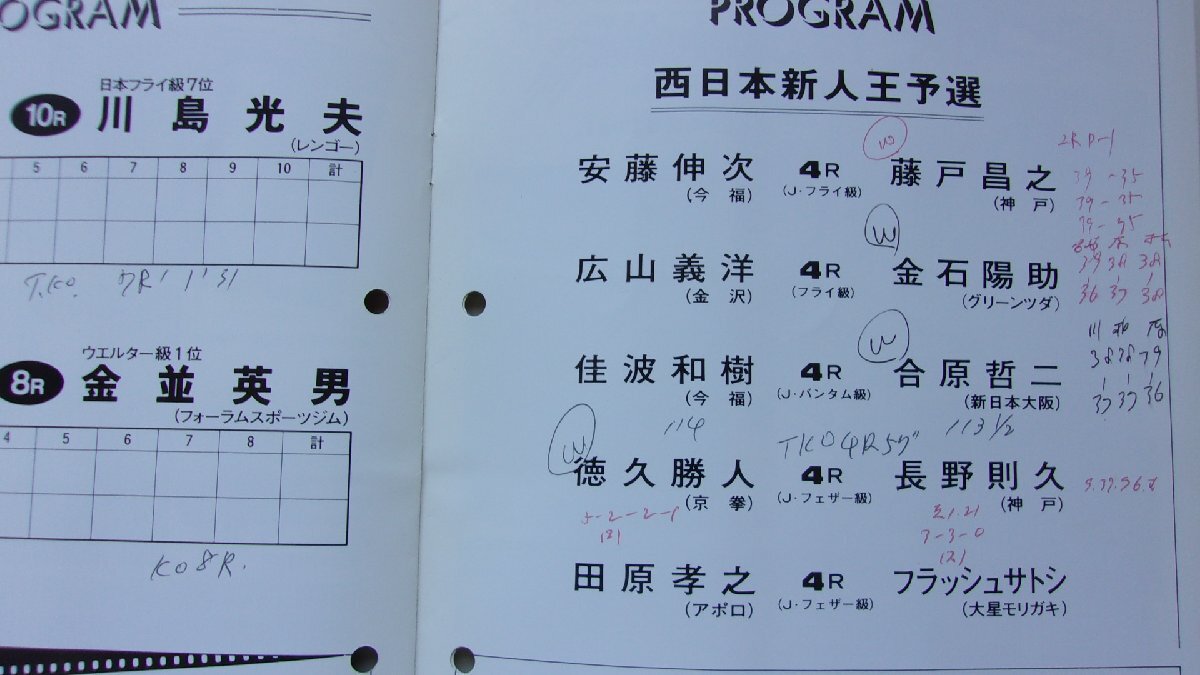 OGRAM
日本フライ級7位
10R 川島光夫
(レンゴー)
5 6 7 8 9 10 計
T.KO. 7R' 1'31
ウエルター級1位
8R 金並英男
(フォーラムスポーツジム)
4 5 6 7 8 計
KO 8R.
PROGRAM
西日本新人王予選
W
安藤伸次 4R 藤戸昌之
(今福) (J・フライ級) (神戸)
39-35
39-35
W
広山義洋 4R 金石陽助
(金沢) (フライ級) (グリーンツダ)
39 38 38
36 37 38
W
佳波和樹 4R 合原哲二
(今福) (J・バンタム級) (新日本大阪)
38 38 39
37 37 36
114 TKO 4R 57" 113 1/2
W
徳久勝人 4R 長野則久
(京拳) (J・フェザー級) (神戸)
5-2-2-1
(2)
3-3-0
(2)
田原孝之 4R フラッシュサトシ
(アポロ) (J・フェザー級) (大星モリガキ)